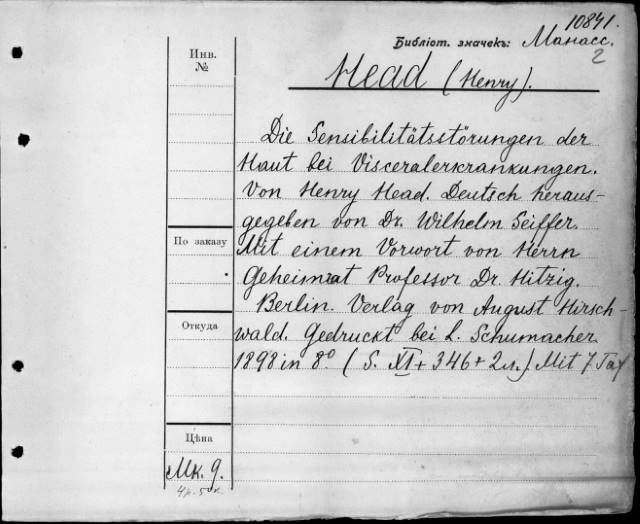 10841.
Библіот. значекъ: Манасс.
2
Инв.
№
Head (Henry).
Die Sensibilitätsstörungen der
Haut bei Visceralerkrankungen.
Von Henry Head. Deutsch heraus-
gegeben von Dr. Wilhelm Seiffer.
По заказу
Mit einem Vorwort von Herrn
Geheimrat Professor Dr. Hitzig.
Berlin. Verlag von August Hirsch-
Откуда
wald. Gedruckt bei L. Schumacher.
1898 in 8° (S. XI + 346 + 2 л.). Mit 7 Taf
Цѣна
Мк. 9.
4р. 50к